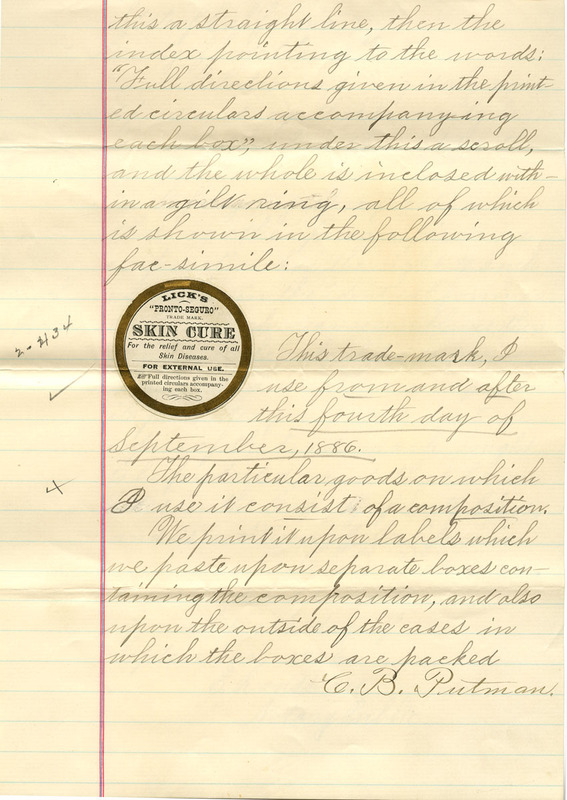 this a straight line, then the
index pointing to the words:
"Full directions given in the print-
ed circulars accompanying
each box", under this a scroll,
and the whole is inclosed with-
in a gilt ring, all of which
is shown in the following
fac-simile:
LICK'S
"PRONTO-SEGURO"
TRADE MARK.
SKIN CURE
For the relief and cure of all
Skin Diseases.
FOR EXTERNAL USE.
☞ Full directions given in the
printed circulars accompany-
ing each box.
2-434
This trade-mark, I
use from and after
this fourth day of
September, 1886.
The particular goods on which
I use it consist of a composition.
We print it upon labels which
we paste upon separate boxes con-
taining the composition, and also
upon the outside of the cases in
which the boxes are packed
C. B. Putman.